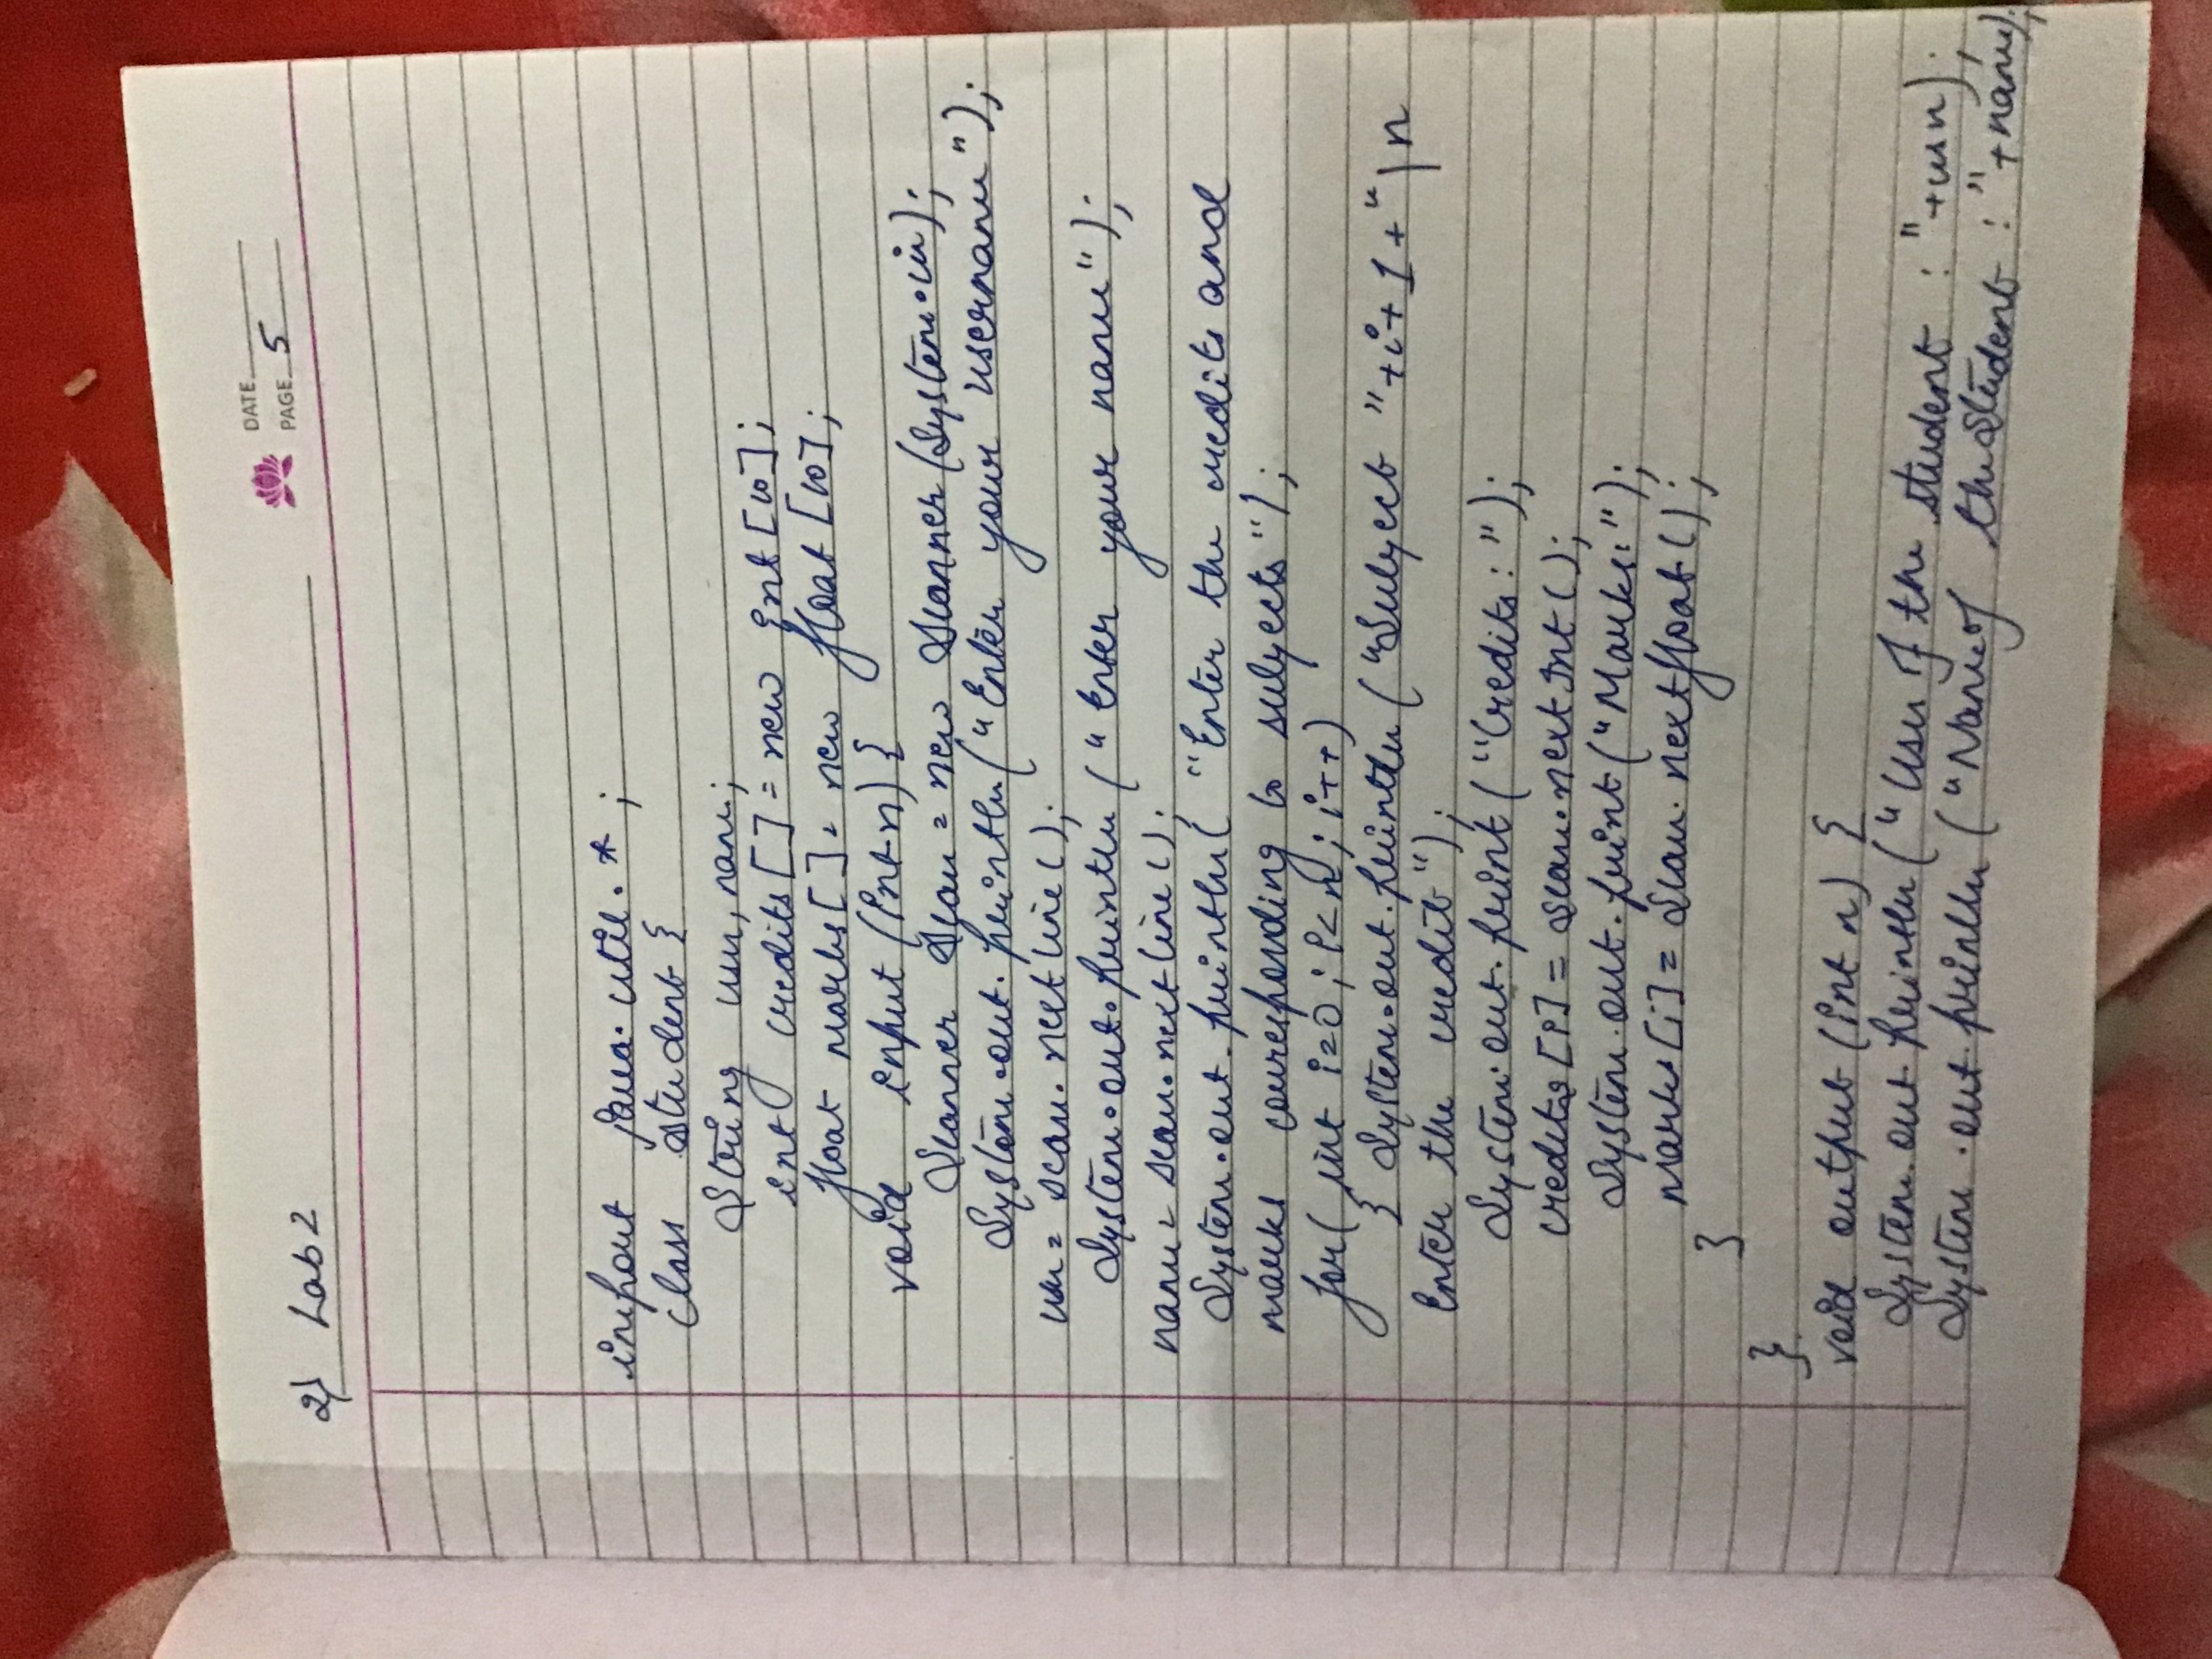 DATE
PAGE 5
2) Lab 2
import java.util.*;
class student {
String usn, name;
int credits[] = new int[10];
float marks[] = new float[10];
void input (int n) {
Scanner scan = new Scanner(System.in);
System.out.println("Enter your username");
usn = scan.nextline();
System.out.println ("Enter your name");
name = scan.nextline();
System.out.println( "Enter the credits and
marks corresponding to subjects");
for( int i=0; i<n; i++)
{ System.out.println ("Subject "+i+1+" \n
Enter the credit");
System.out.print ("Credits: ");
credits[i] = scan.nextInt();
System.out.print ("Marks:");
marks[i] = scan.nextfloat();
}
}
void output (int n) {
System.out.println ("Usn of the student : "+usn);
System.out.println ("Name of the Student : "+name);